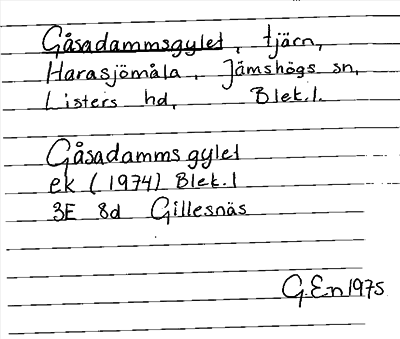 Gåsadammsgylet, tjärn,
Harasjömåla, Jämshögs sn,
Listers hd, Blek.l.
Gåsadammsgylet
ek (1974) Blek.l
3E 8d Gillesnäs
G.En 1975